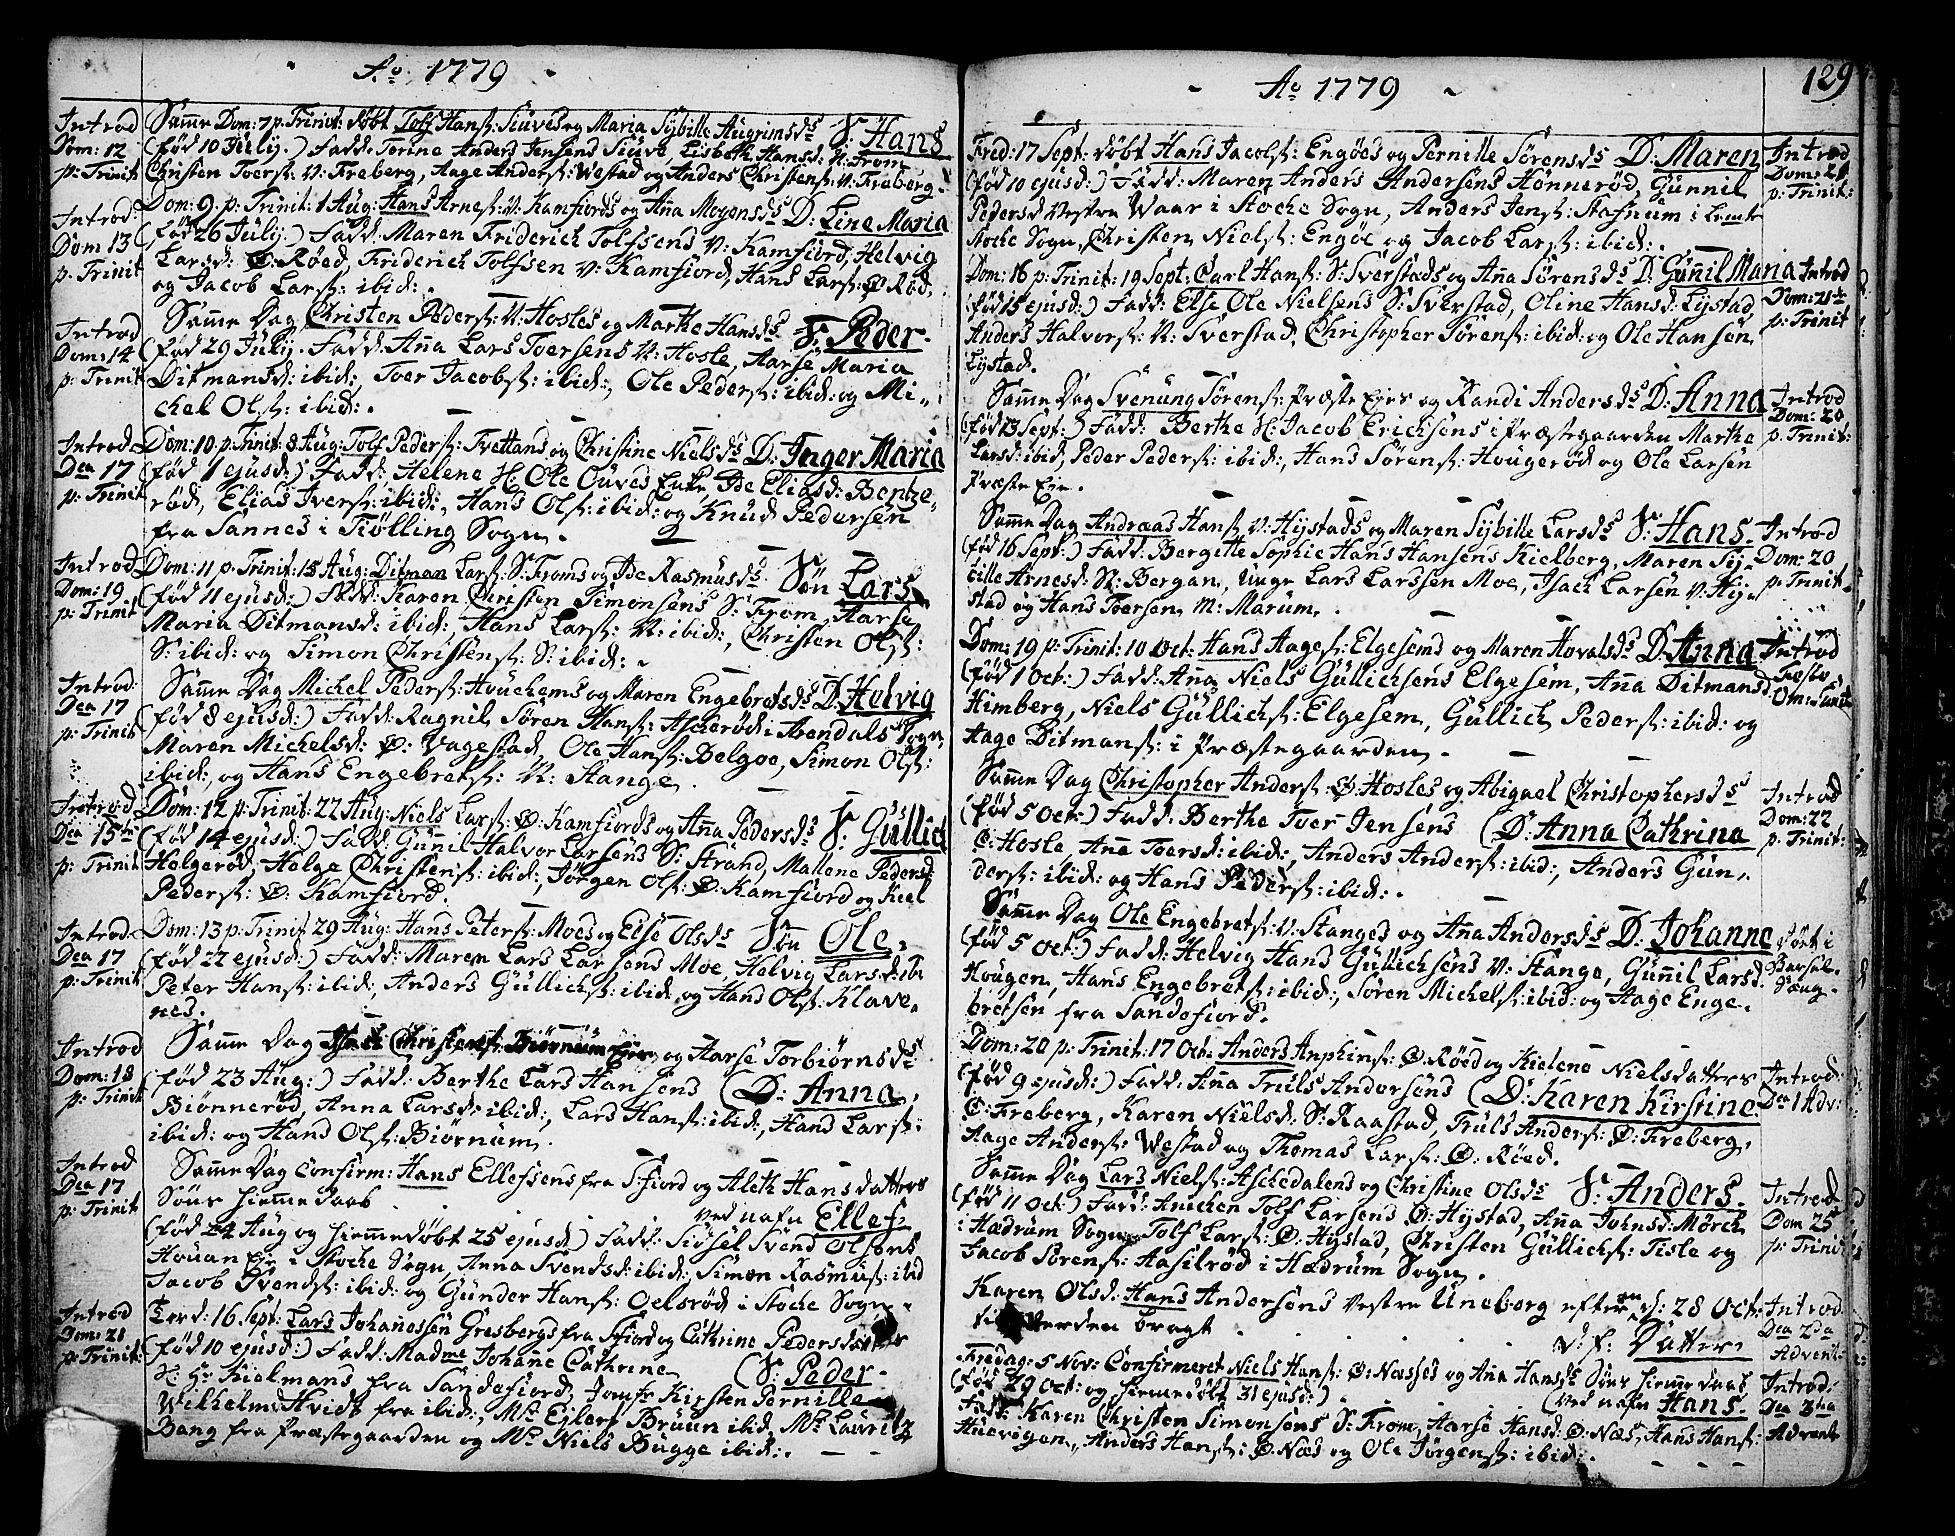 Ao 1779
Introd Dom: 12 p: Trinit
Samme Dom: 7 p. Trinit: døbt Tolf Hans: Siuves og Maria Sybille Augrimsds S. Hans
(fød 10 Julij.) Fadd: Torine Anders Jensens Siuve, Lisbeth Hansd: N: From
Christen Toers: N: Freberg, Aage Anders: Westad og Anders Christens: N: Freberg.
Introd: Dom 13 p: Trinit
Dom: 9. p: Trinit: 1 Aug: Hans Arnes: N: Kamfiords og Aña Moyensds D: Line Maria
(fød 26 Julij) Fadd: Maren Friderich Tolfsens N: Kamfiord, Helvig
Larsd: Ø: Røed, Friderich Tolfsen N: Kamfiord, Hans Lars: Ø: Rød,
og Jacob Lars: ibid:.
Introd Dom: 14 p: Trinit
Samme Dag Christen Peders: N: Hosles og Marthe Hansds S. Peder.
(fød 29 Julij. Fadd: Aña Lars Toersens N: Hosle, Aarse Maria
Ditmansd: ibid:, Toer Jacobs: ibid:, Ole Peders: ibid: og Mi-
chel Ols: ibid:.
Introd Dca 17 p: Trinit
Dom: 10. p: Trinit: 8 Aug: Tolf Peders: Tvettans og Christine Nielsds D: Inger Maria
(fød 1 ejusd:) Fadd: Helene H: Ole Ouves Enke, Ide Eliasd: Bentze-
rød, Elias Ivers: ibid:, Hans Ols: ibid: og Knud Pedersen
fra Sannes i Tiølling Sogn.
Introd Dom: 19 p: Trinit
Dom: 11 p: Trinit: 15 Aug: Ditman Lars: S: Froms og Ide Rasmusds Søn Lars
(fød 11 ejusd:) Fadd: Karen Christen Simonsens S: From, Aarse
Maria Ditmansd: ibid:, Hans Lars: N: ibid:, Christen Ols:
S: ibid: og Simon Christens: S: ibid:.
Introd: Dca 17 p: Trinit
Samme Dag Michel Peders: Houchems og Maren Engebretsds D. Helvig
(fød 8 ejusd:) Fadd: Ragnil Søren Hans: Ascherød i Arendals Sogn,
Maren Michelsd: Ø: Vagestad, Ole Hans: Belgoe, Simon Ols:
ibid:, og Hans Engebrets: N: Stange.
Introd: Dca 15de p: Trinit
Dom: 12 p: Trinit: 22 Aug: Niels Lars: Ø: Kamfiords og Aña Pedersds S: Güllich
(fød 14 ejusd:) Fadd: Guñil Halvor Larsens S: Strand, Mallene Pedersd:
Helgerød, Helge Christens: ibid:, Jørgen Ols: Ø: Kamfiord og Kiel
Peders: Ø: Kamfiord.
Introd: Dca 17 p: Trinit
Dom: 13 p: Trinit 29 Aug: Hans Peters: Moes og Else Olsds Søn Ole.
(fød 22 ejusd:) Fadd: Maren Lars Larsens Moe, Helvig Larsd: ibi
Peter Hans: ibid:, Anders Güllichs: ibid: og Hans Ols: Klave-
nes.
Introd Dom: 18 p: Trinit
Samme Dag Christens: Biørnum Eje og Aarse Torbiørnsds
(fød 23 Aug:) Fadd: Berthe Lars Hansens (D: Anna,
Biønnerød, Anna Larsd: ibid:, Lars Hans: ibid:, Hans Lars:
ibid: og Hans Ols: Biørnum.
Introd Dca 17 p: Trinit
Samme Dag Confirm: Hans Ellefsens fra Sfiord og Aleth Hansdatters
Søns hiemme Daab . . . ved nafn Ellef.
(fød 24 Aug og hiemmedøbt 25 ejusd:) Fadd: Sidsel Svend Olsens
Houan Eje i Stoche Sogn, Anna Svendsd: ibid:, Simon Rasmus: ibid
Jacob Svends: ibid: og Gunder Hans: Oelsrød i Stoche Sogn.
Introd Dom: 21 p: Trinit:
Tersd: 16 Sept: Lars Johanessen Gresbergs fra Sfiord og Cathrine Pedersdatters
(fød 10 ejusd:) Fadd: Madme Johañe Cathrine (S: Peder.
Kielmans fra Sandefiord, Jomfr Kirsten Pernille
Wilhelms Hvidt fra ibid:, Mr Ejlert Bruun ibid, Mr Lauritz
Bang fra Præstegaarden og Mr Niels Bugge ibid:.
Ao 1779
129
Fred: 17 Sept: døbt Hans Jacobs: Engøes og Pernille Sørensds D: Maren
Introd Dom: 21 p: Trinit:
(fød 10 ejusd:) Fadd: Maren Anders Andersens Hønnerød, Gunnil
Pedersd Vestre Waar i Stoche Sogn, Anders Jens: Stasnum i bemte
Stoche Sogn, Christen Niels: Engøe og Jacob Lars: ibid:.
Dom: 16 p: Trinit: 19 Sept: Carl Hans: S: Sverstads og Aña Sørensds D: Guñil Maria
Introd Dom: 21de p: Trinit
(fød 15 ejusd:) Fadd: Else Ole Nielsens S: Sverstad, Oline Hansd: Lystad,
Anders Halvors: N: Sverstad, Christopher Sørens: ibid: og Ole Hansen
Lystad.
Samme Dag Svenung Sørens: Præste Ejes og Randi Andersds D: Anna
Introd Dom: 20 p: Trinit:
(fød 13 Sept:) Fadd: Berthe H: Jacob Erichsens i Præstegaarden Marthe
Larsd: ibid, Peder Peders: ibid:, Hans Sørens: Hougerød og Ole Larsen
Præste Eje.
Samme Dag Andreas Hans: N: Hystads og Maren Sybille Larsds S: Hans.
Introd Dom: 20 p: Trinit.
(fød 16 Sept:) Fadd: Bergette Sophie Hans Hansens Kielberg, Maren Sy-
bille Arnesd: N: Bergan, Unge Lars Larssen Moe, Isach Larsen N: Hy-
stad og Hans Toersen M: Marum.
Dom: 19 p: Trinit: 10 Oct: Hans Aages: Elgesems og Maren Hovalsds D: Anna
Introd Festo Om: Sanct
(fød 1 Oct:) Fadd: Aña Niels Güllichsens Elgesem, Aña Ditmansd
Himberg, Niels Güllichs: Elgesem, Güllich Peders: ibid: og
Aage Ditmans: i Præstegaarden.
Samme Dag Christopher Anders: Ø: Hosles og Abigael Christophersds
Introd Dom: 22 p: Trinit:
(fød 5 Oct:) Fadd: Berthe Toer Jensens (D: Anna Cathrina
Ø: Hosle, Aña Toersd: ibid:, Anders Anders: ibid:, Anders Gun-
ders: ibid: og Hans Peders: ibid:.
Samme Dag Ole Engebrets: N: Stanges og Aña Andersds D: Johanne
i Barsel-Seng.
(fød 5 Oct:) Fadd: Helvig Hans Güllichsens N: Stange, Guñil Larsd:
Hougen, Hans Engebrets: ibid:, Søren Michels: ibid: og Aage Enge-
bretsen fra Sandefiord.
Dom: 20 p: Trinit: 17 Oct: Anders Anphins: Ø: Røed og Kielene Nielsdatters
Introd: Dca 1 Adv:
(fød 9 ejusd:) Fadd: Aña Truls Andersens (D: Karen Kirstine
Ø: Freberg, Karen Nielsd: S: Raastad, Truls Anders: Ø: Freberg,
Aage Anders: Westad og Thomas Lars: Ø: Røed.
Samme Dag Lars Niels: Aschedalens og Christine Olsds S: Anders.
Introd Dom 25 p: Trinit
(fød 11 Oct:) Fadd: Anichen Tolf Larsens Ø: Hystad, Aña Johnsd: Mørch
i Hædrum Sogn, Tolf Lars: Ø: Hystad, Christen Güllichs: Tisle og
Jacob Sørens: Aasilrød i Hædrum Sogn.
Karen Olsd: Hans Andersens Vestre Uneborg efter d: 28 Oct:
Introd Dca 2da Advent
til Verden bragt . . . d: f: Datter.
Fredag: 5 Nov: Confirmeret Niels Hans: Ø: Nesses og Aña Hansds Søns hiemme daab
Introd: Dca 3tia Advent
(fød 29 Oct: og hiemmedøbt 31 ejusd:) (ved nafn Hans.
Fadd: Karen Christen Simonsens S: From, Aarse Hansd: Ø: Næs, Hans Hans:
Huevigen, Anders Hans: Ø: Næs og Ole Jørgens: ibid:.